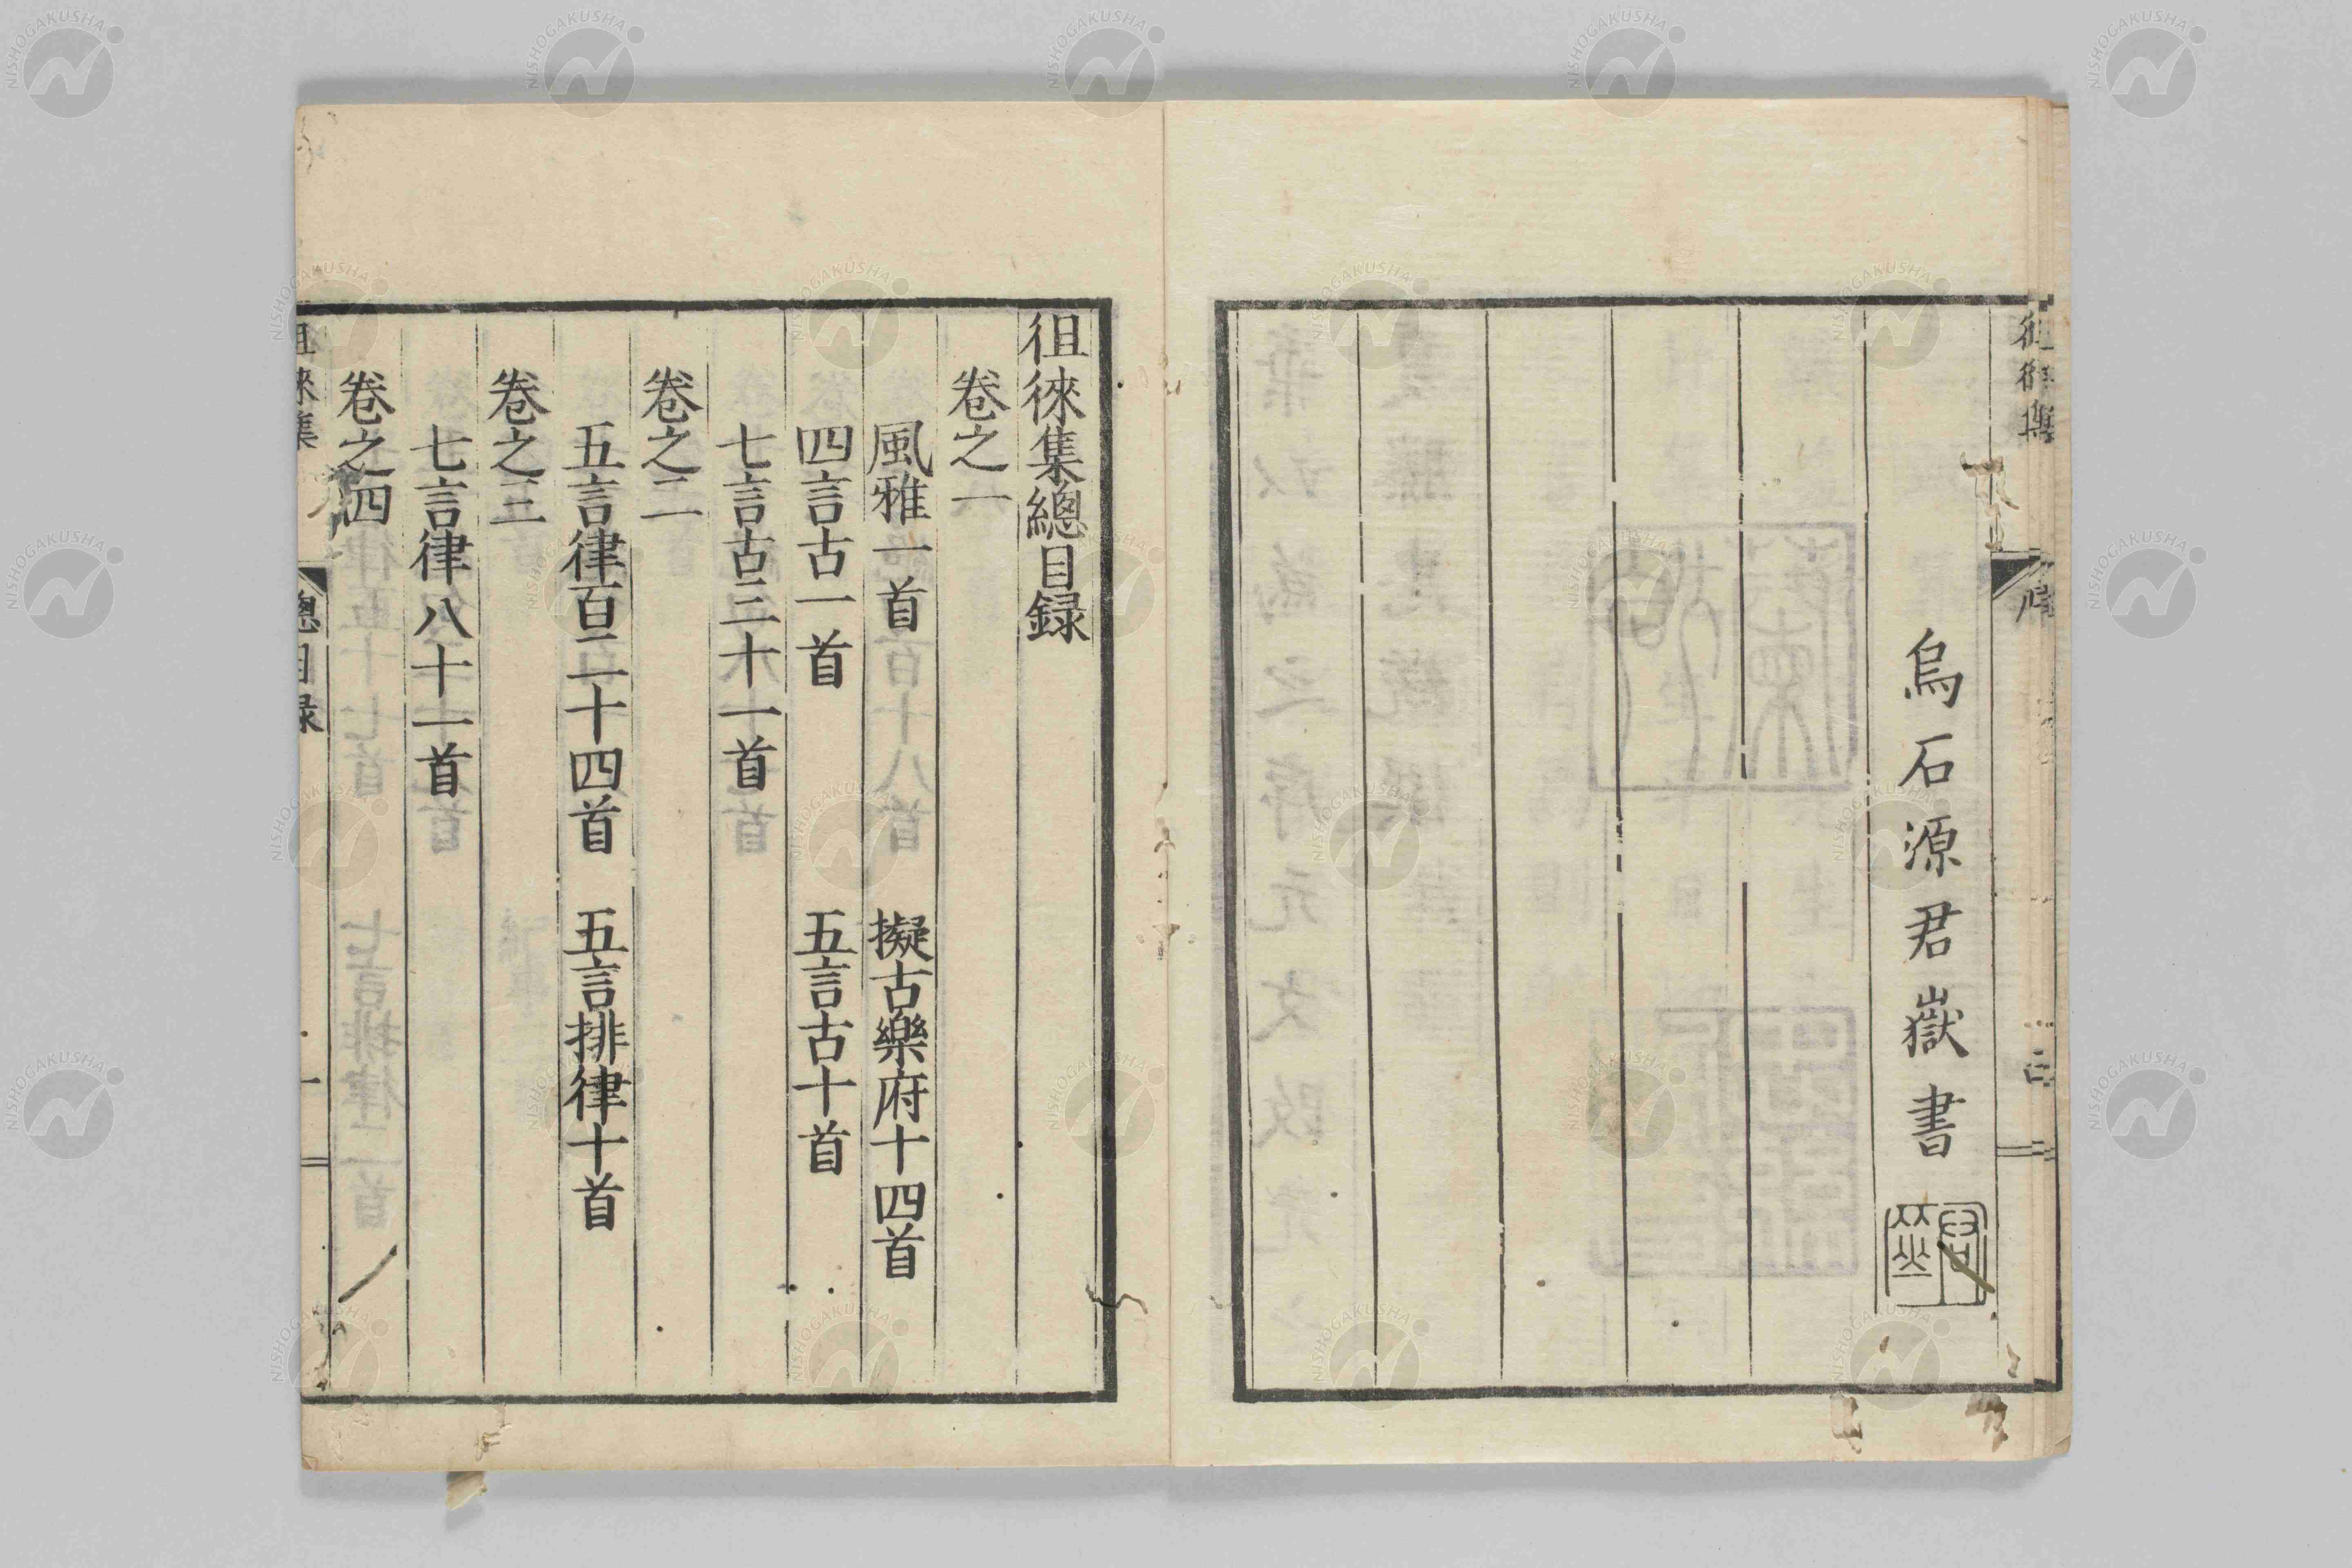 徂徠集
序
烏石源君嶽書
徂徠集總目録
卷之一
風雅一首 擬古樂府十四首
四言古一首 五言古十首
七言古三十一首
卷之二
五言律百二十四首 五言排律十首
卷之三
七言律八十一首
卷之四
徂徠集 總目録 一
NISHOGAKUSHA